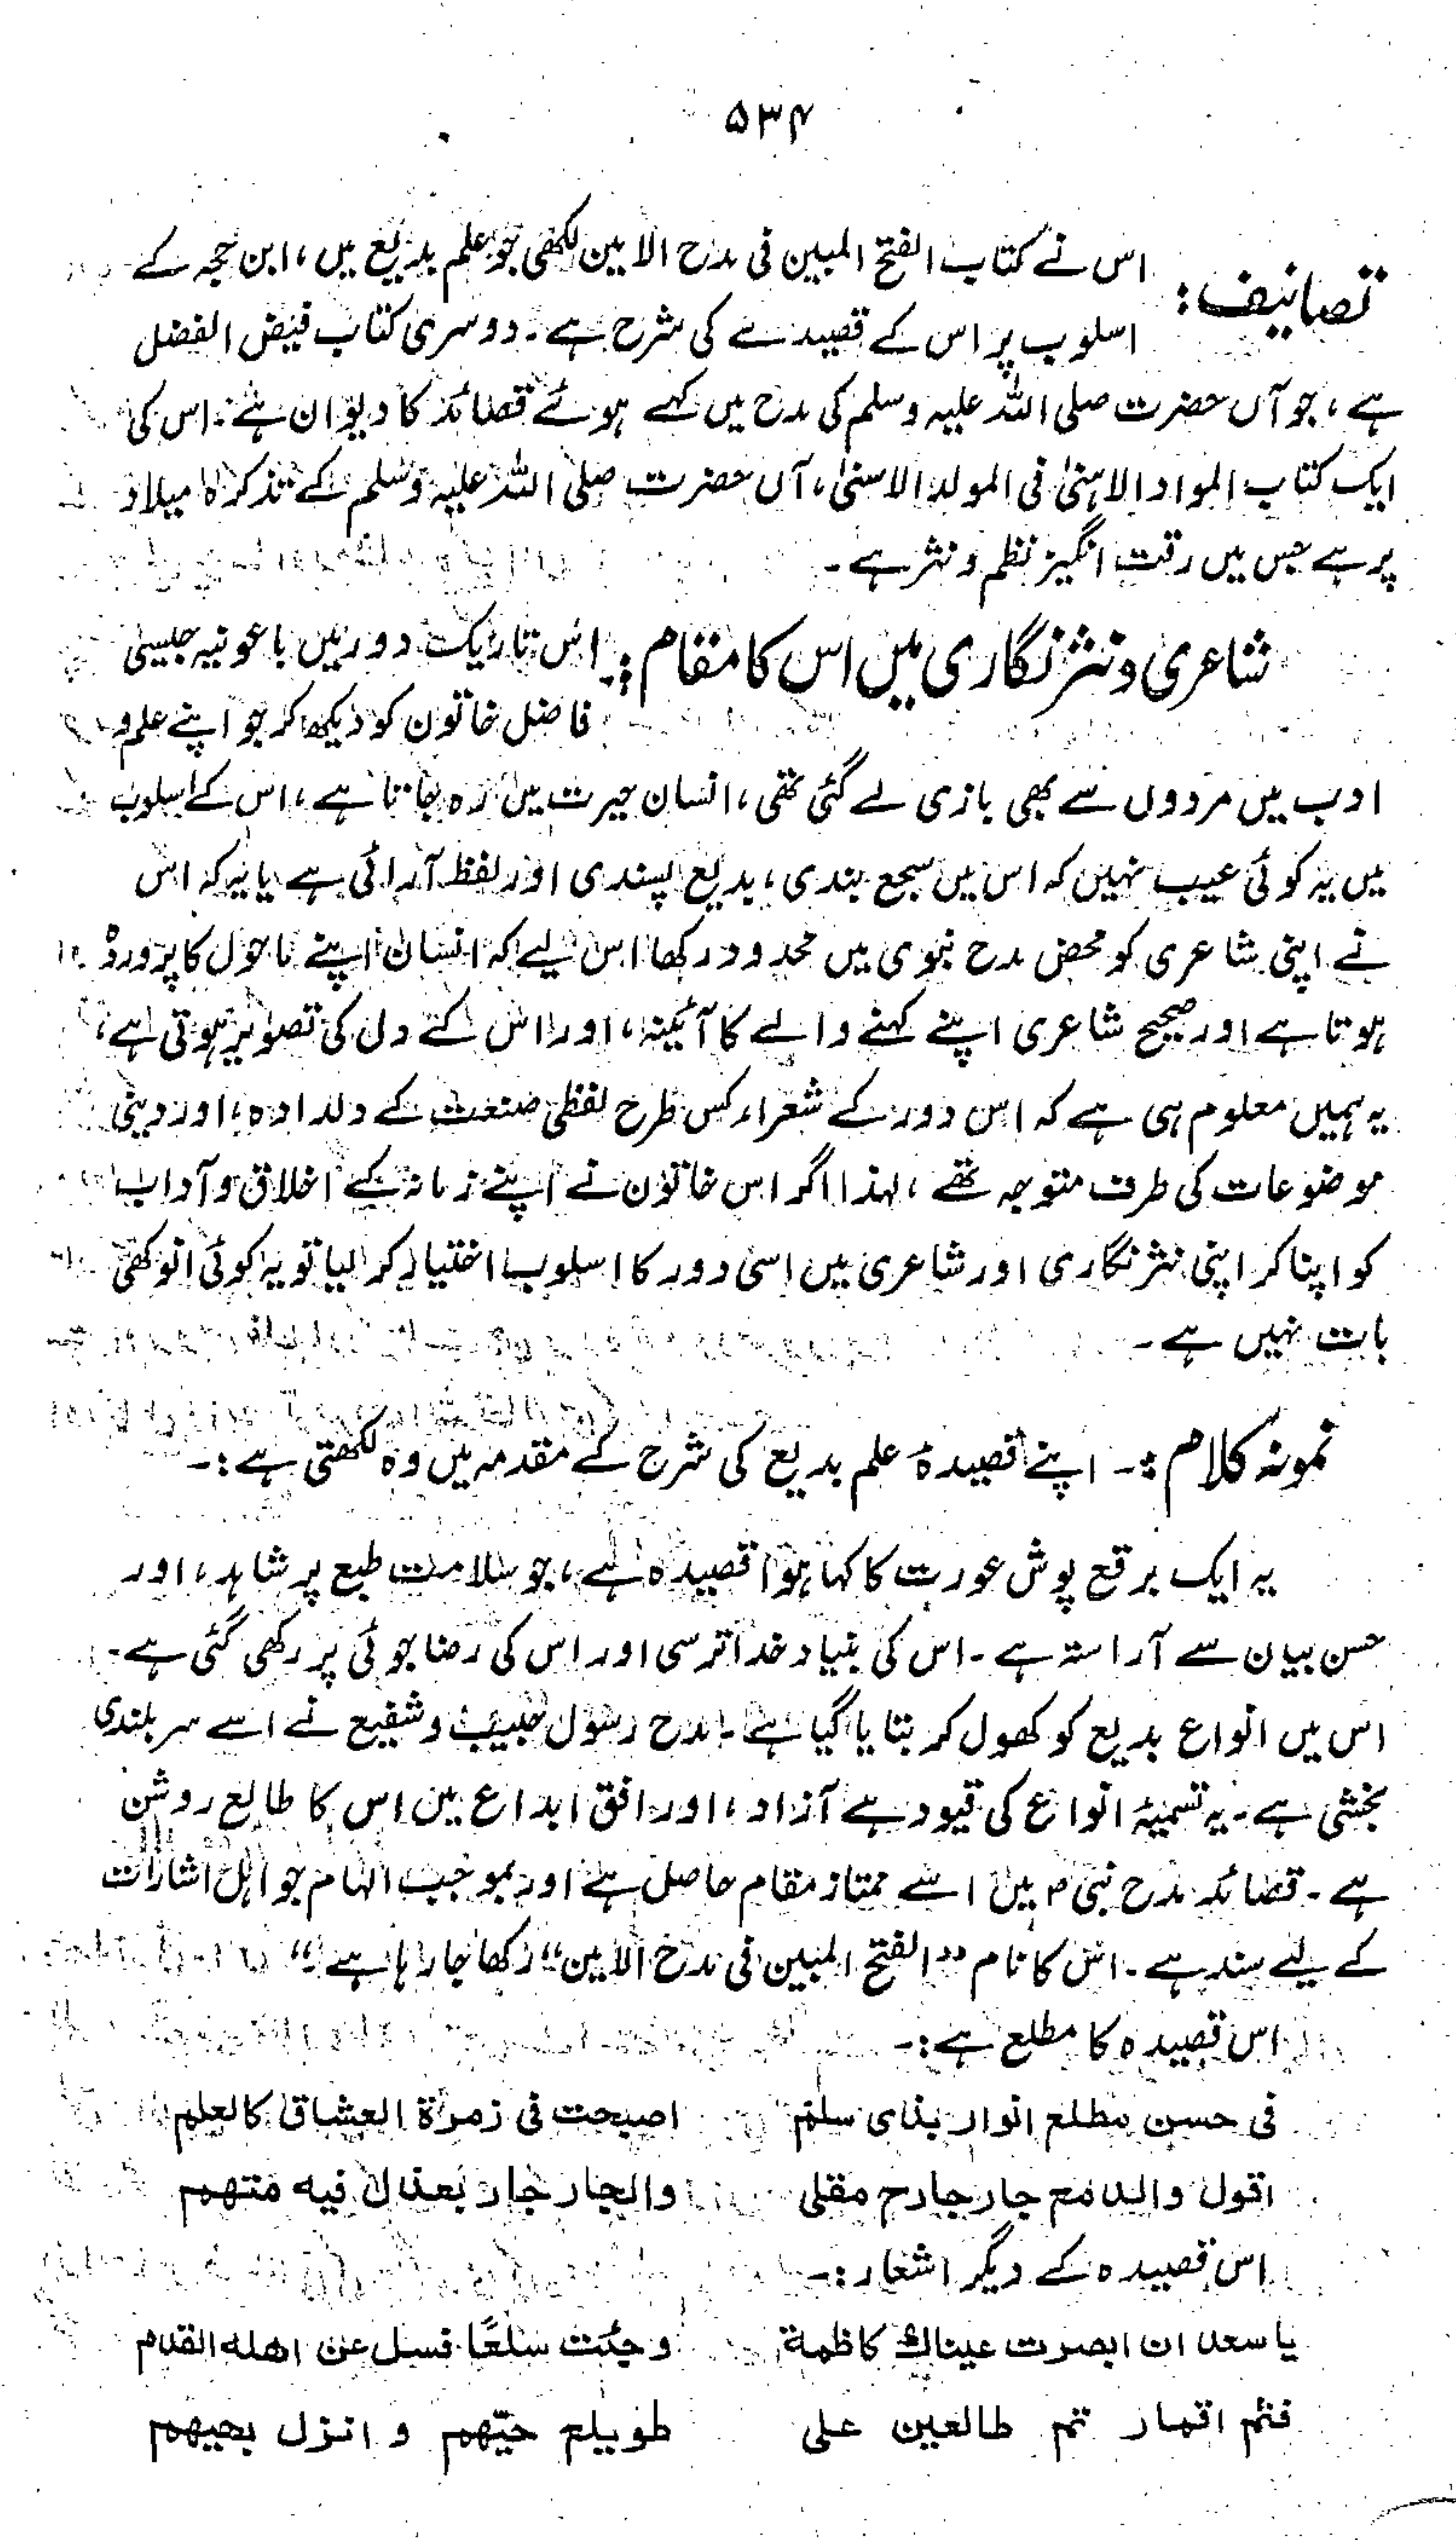 ۵۳۴
تصانیف: اس نے کتاب الفتح المبین فی مدح الامین لکھی جو علم بدیع میں، ابن حجہ کے
اسلوب پر اس کے قصیدے کی شرح ہے۔ دوسری کتاب فیض الفضل
ہے، جو آں حضرت صلی اللہ علیہ وسلم کی مدح میں کہے ہوئے قصائد کا دیوان ہے۔ اس کی
ایک کتاب المواد الاہنیٰ فی المولد الاسنیٰ، آں حضرت صلی اللہ علیہ وسلم کے تذکرۂ میلاد
پر ہے جس میں رقت انگیز نظم و نثر ہے۔
شاعری و نثر نگاری میں اس کا مقام:۔ اس تاریک دور میں باعونیہ جیسی
فاضل خاتون کو دیکھ کر جو اپنے علم و
ادب میں مردوں سے بھی بازی لے گئی تھی، انسان حیرت میں رہ جاتا ہے، اس کے اسلوب
میں یہ کوئی عیب نہیں کہ اس میں سجع بندی، بدیع پسندی اور لفظ آرائی ہے یا یہ کہ اس
نے اپنی شاعری کو محض مدح نبوی میں محدود رکھا اس لیے کہ انسان اپنے ماحول کا پروردہ
ہوتا ہے اور صحیح شاعری اپنے کہنے والے کا آئینہ، اور اس کے دل کی تصویر ہوتی ہے،
یہ ہمیں معلوم ہی ہے کہ اس دور کے شعراء کس طرح لفظی صنعت کے دلدادہ، اور دینی
موضوعات کی طرف متوجہ تھے، لہذا اگر اس خاتون نے اپنے زمانہ کے اخلاق و آداب
کو اپنا کر اپنی نثر نگاری اور شاعری میں اسی دور کا اسلوب اختیار کر لیا تو یہ کوئی انوکھی
بات نہیں ہے۔
نمونہ کلام:۔ اپنے قصیدۂ علم بدیع کی شرح کے مقدمہ میں وہ لکھتی ہے:۔
یہ ایک برقع پوش عورت کا کہا ہوا قصیدہ ہے، جو سلامت طبع پر شاہد، اور
حسن بیان سے آراستہ ہے۔ اس کی بنیاد خدا ترسی اور اس کی رضا جوئی پر رکھی گئی ہے۔
اس میں انواع بدیع کو کھول کر بتایا گیا ہے۔ مدح رسول حبیب و شفیع نے اسے سربلندی
بخشی ہے۔ یہ تسمیۂ انواع کی قیود سے آزاد، اور افق ابداع میں اس کا طالع روشن
ہے۔ قصائد مدح نبیؐ میں اسے ممتاز مقام حاصل ہے اور بموجب الہام جو اہل اشارات
کے لیے سند ہے۔ اس کا نام ”الفتح المبین فی مدح الامین“ رکھا جا رہا ہے“
اس قصیدہ کا مطلع ہے:۔
فی حسن مطلع انوار بذی سلم اصبحت فی زمرة العشاق کالعلم
اقول والدمع جار جارح مقلی والجار جار بعذل فیه متهم
اس قصیدہ کے دیگر اشعار:۔
یا سعد ان ابصرت عیناك کاظمة وجئت سلعًا فسل عن اهله القدم
فثم اقمار تم طالعین علی طویلع حیّهم و انزل بحیهم